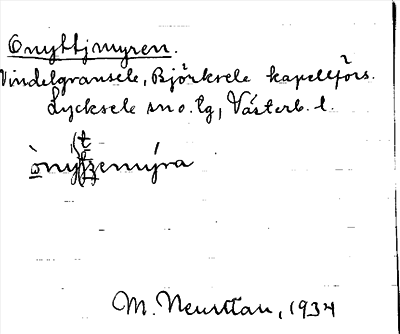 Onyttjmyren.
Vindelgransele, Björksele kapellförs.
Lycksele sn o. lg, Västerb. l.
M. Neuttau, 1934